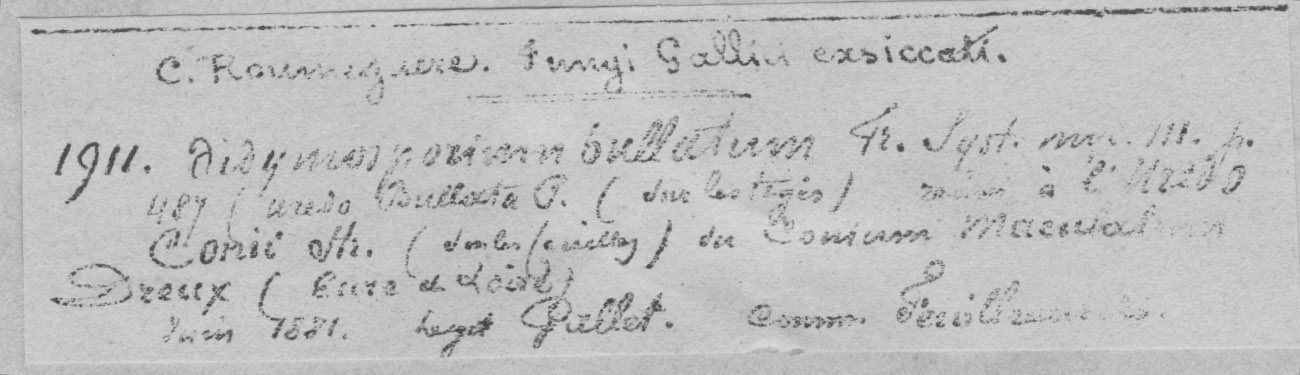 C. Roumeguere. Fungi Gallici exsiccati.
1911. Didymosporium bullatum Fr. Syst. myc. III. p.
487 (uredo Bullata P. (sur les tiges) réuni à l'Uredo
Conii Str. (sur les feuilles) du Conium Maculatum
Dreux (Eure & Loire)
Juin 1881. Legit Gallet. Comm.